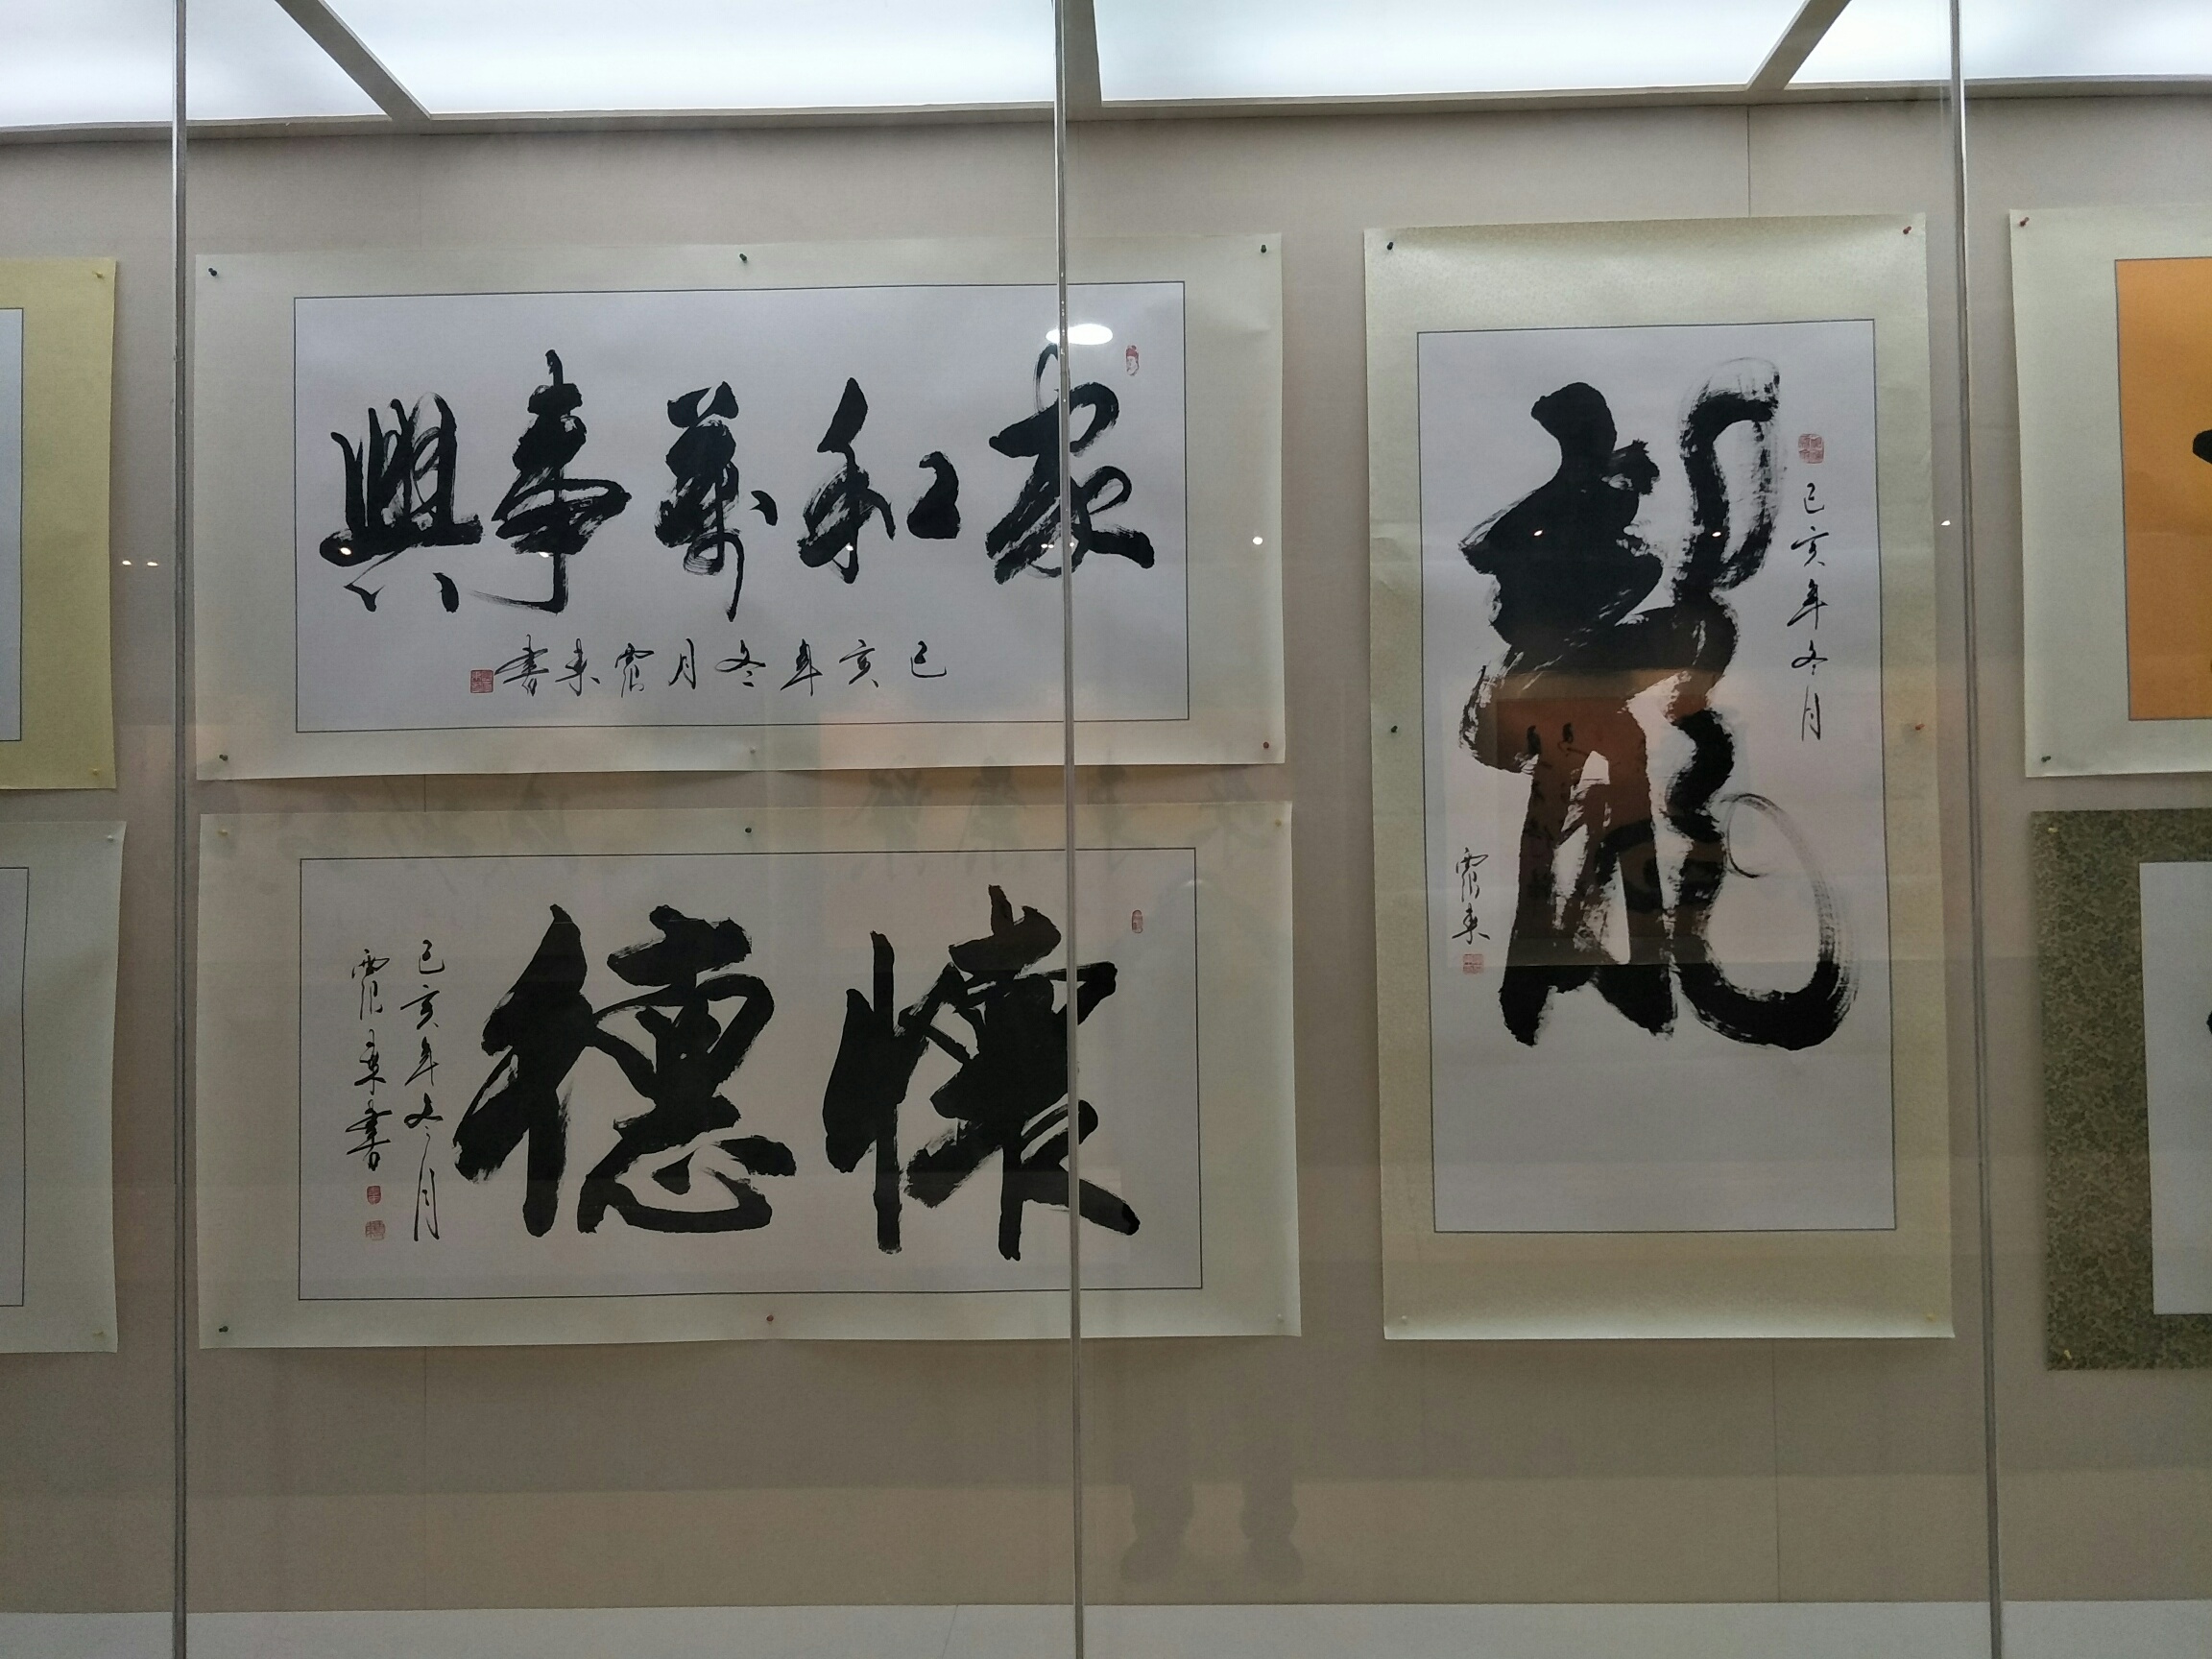 家和萬事興
己亥年冬月震東書
懷德
己亥年冬月
震東書
龍
己亥年冬月
震東